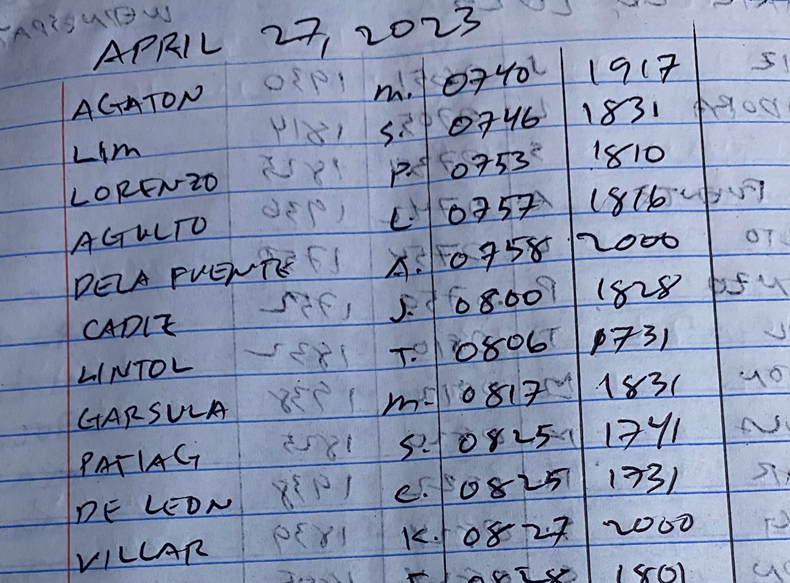 APRIL 27, 2023
AGATON M. 0740 1917
LIM S. 0746 1831
LORENZO P. 0753 1810
AGULTO L. 0757 1816
DELA FUENTE A. 0758 2000
CADIZ J. 0800 1828
LINTOL T. 0806 1731
GARSULA M. 0817 1831
PATIAG S. 0825 1741
DE LEON C. 0825 1731
VILLAR K. 0827 2000
0828 1801